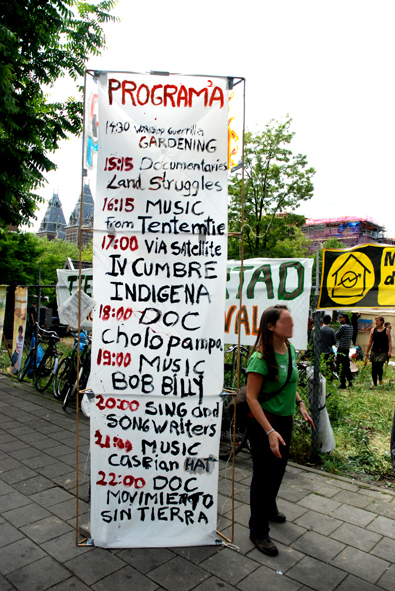 PROGRAM'A
14:30 Workshop Guerrilla
GARDENING
15:15 Documentaries
Land Struggles
16:15 MUSIC
from Tentemtie
17:00 VIA SAtellite
IV CUMBRE
INDIGENA
18:00 DOC
Cholo pampa.
19:00 MUSIC
BOB BILLY
20:00 SING and
SONGWriters
21:00 MUSIC
Caspian HAT
22:00 DOC
MOVIMIENTO
SIN TIERRA
TAD
DE
VAL